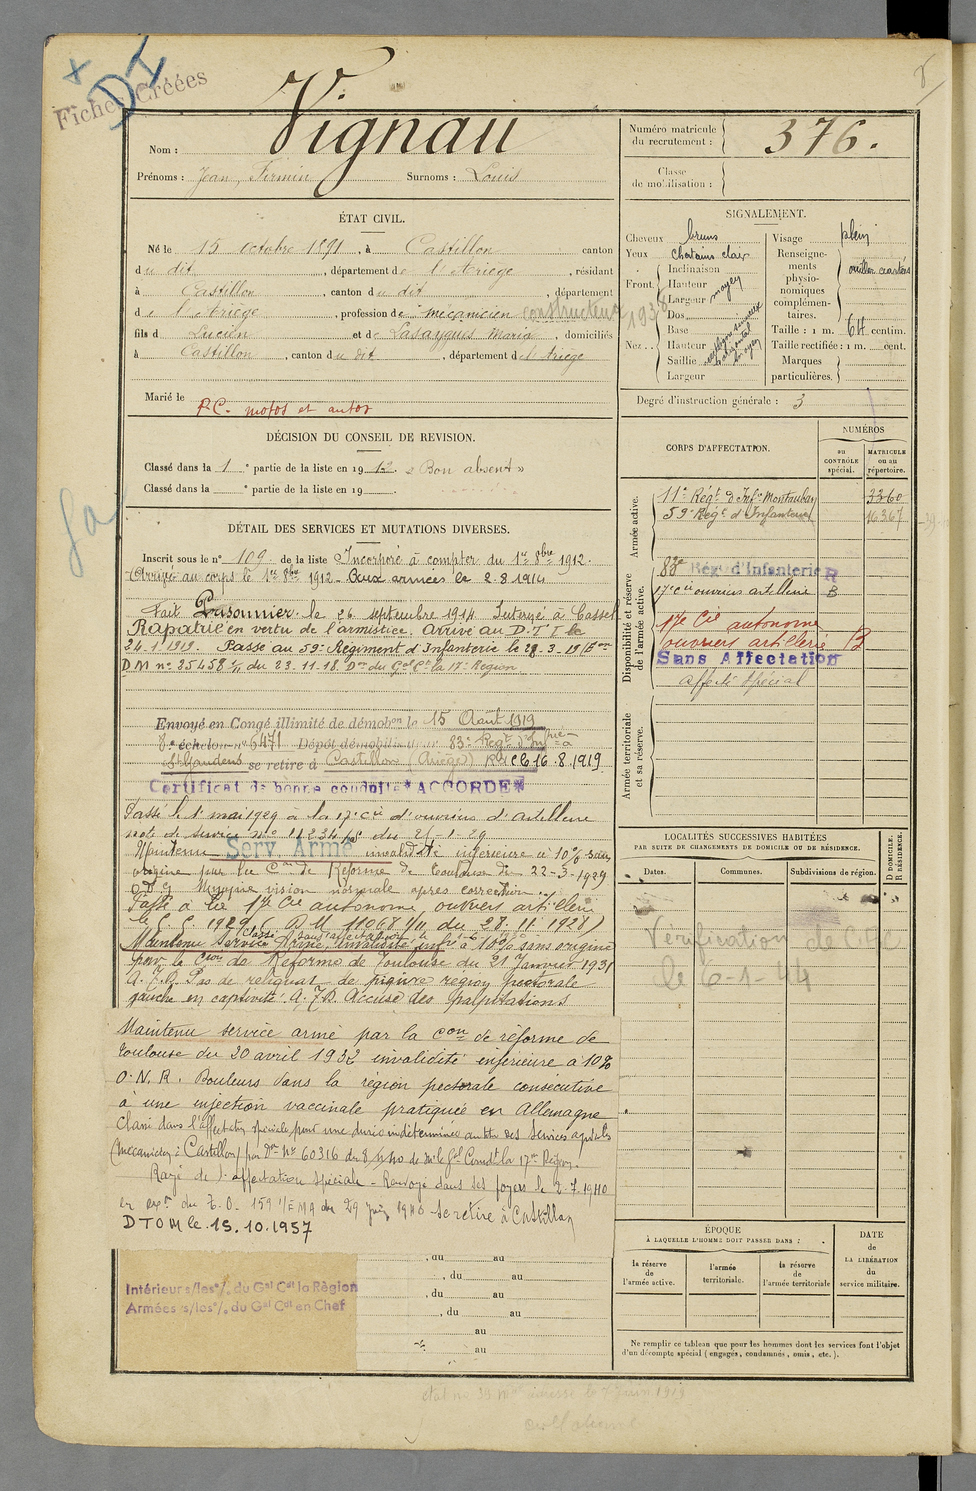 Fiches Créées
DI
Nom : Vignau
Prénoms : Jean, Firmin Surnoms : Louis
Numéro matricule du recrutement : 376.
Classe de mobilisation :
ÉTAT CIVIL.
Né le 15 octobre 1891, à Castillon canton
du dit, département de l'Ariège, résidant
à Castillon, canton du dit, département
de l'Ariège, profession de mécanicien constructeur 1938
fils de Lucien et de Lasaygues Maria, domiciliés
à Castillon, canton du dit, département de l'Ariège
Marié le
P.C. motos et autos
SIGNALEMENT.
Cheveux bruns
Yeux chatains clair
Front. Inclinaison
Hauteur
Largeur moyen
Nez. Dos
Base
Hauteur
Saillie
Largeur
Visage plein
Renseignements physionomiques complémentaires.
Taille : 1 m. 64 centim.
Taille rectifiée : 1 m. cent.
Marques particulières.
Degré d'instruction générale : 3
DÉCISION DU CONSEIL DE REVISION.
Classé dans la 1e partie de la liste en 1912. « Bon absent »
Classé dans la e partie de la liste en 19
DÉTAIL DES SERVICES ET MUTATIONS DIVERSES.
Inscrit sous le n° 109 de la liste Incorporé à compter du 1er 8bre 1912.
Arrivé au corps le 1er 8bre 1912. Aux armées le 2.8.1914
Fait Prisonnier le 26 septembre 1914 Interné à Cassel
Rapatrié en vertu de l'armistice. Arrivé au D.T.I le
24.1.1919. Passé au 59e Régiment d'Infanterie le 28.3.19
DM n° 25458 1/7 du 23.11.18 Don du Gal Ct la 17e Région
Envoyé en Congé illimité de démobon le 15 Août 1919
8e échelon n° 6471 Dépôt démobilisateur 83e Regt d'Infrie à
St Gaudens se retire à Castillon (Ariège) Rd Cb 16.8.1919
Certificat de bonne conduite "ACCORDE"
Passé le 1er mai 1929 à la 17e Cie d'ouvriers d'artillerie
note de service n° 11234 du 25-1-29
Maintenu Serv. Armé invalidité inférieure à 10% sans
origine par la Con de Réforme de Toulouse du 22-3-1929
Myopie vision normale après correction.
Passé à la 17e Cie autonome ouvriers artillerie
le 1929 (DM 11068 1/11 du 28.11.1928)
Maintenu Service Armé, invalidité infre à 10% sans origine
par la Con de Réforme de Toulouse du 21 Janvier 1931
A.F.D. Pas de reliquat de piqûre région pectorale
gauche en captivité. A.F.D. Accuse des palpitations
Maintenu service armé par la Con de réforme de
Toulouse du 20 avril 1932 invalidité inférieure à 10%
O.N.R. Douleurs dans la région pectorale consécutive
à une injection vaccinale pratiquée en Allemagne
Classé dans l'affectation spéciale pour une durée indéterminée au titre des Services agricoles
(mécanicien à Castillon) par Don N° 60316 du de Mr le Gal Comdt la 17e Région.
Rayé de l'affectation spéciale - Renvoyé dans ses foyers le 2.7.1940
en exon du T.O. 159 1/EMA du 29 Juin 1940 se retire à Castillon
DTOM le 15.10.1957
Intérieur s/les o/. du Gal Cdt la Région
Armées s/les o/. du Gal Cdt en Chef
, du au
, du au
, du au
, du au
au
au
CORPS D'AFFECTATION.
NUMÉROS
au CONTRÔLE spécial.
MATRICULE ou au répertoire.
Armée active.
11e Régt d'Infie Montauban 3360
59e Régt d'Infanterie 16367
Disponibilité et réserve de l'armée active.
83e Régt d'Infanterie R
17e Cie ouvriers artillerie B
17e Cie autonome
ouvriers artillerie B
Sans Affectation
Affecté spécial
Armée territoriale et sa réserve.
LOCALITÉS SUCCESSIVES HABITÉES
PAR SUITE DE CHANGEMENTS DE DOMICILE OU DE RÉSIDENCE.
D DOMICILE. R RÉSIDENCE.
Dates. Communes. Subdivisions de région.
Vérification de
le 6-1-44
ÉPOQUE
À LAQUELLE L'HOMME DOIT PASSER DANS :
la réserve de l'armée active.
l'armée territoriale.
la réserve de l'armée territoriale
DATE de LA LIBÉRATION du service militaire.
Ne remplir ce tableau que pour les hommes dont les services font l'objet
d'un décompte spécial (engagés, condamnés, omis, etc.).